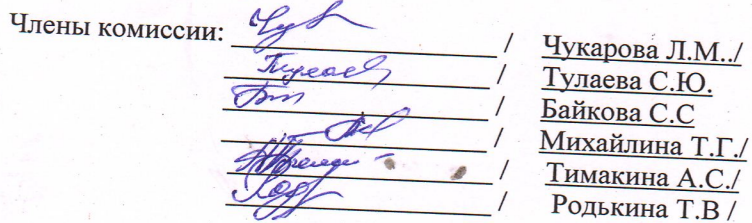 Члены комиссии: ____________ / Чукарова Л.М../
____________ / Тулаева С.Ю.
____________ / Байкова С.С
____________ / Михайлина Т.Г./
____________ / Тимакина А.С./
____________ / Родькина Т.В /